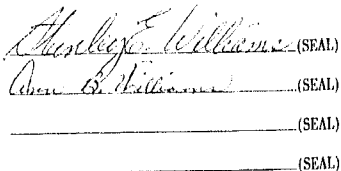 Stanley E. Williams (SEAL)
Ann B. Williams (SEAL)
(SEAL)
(SEAL)